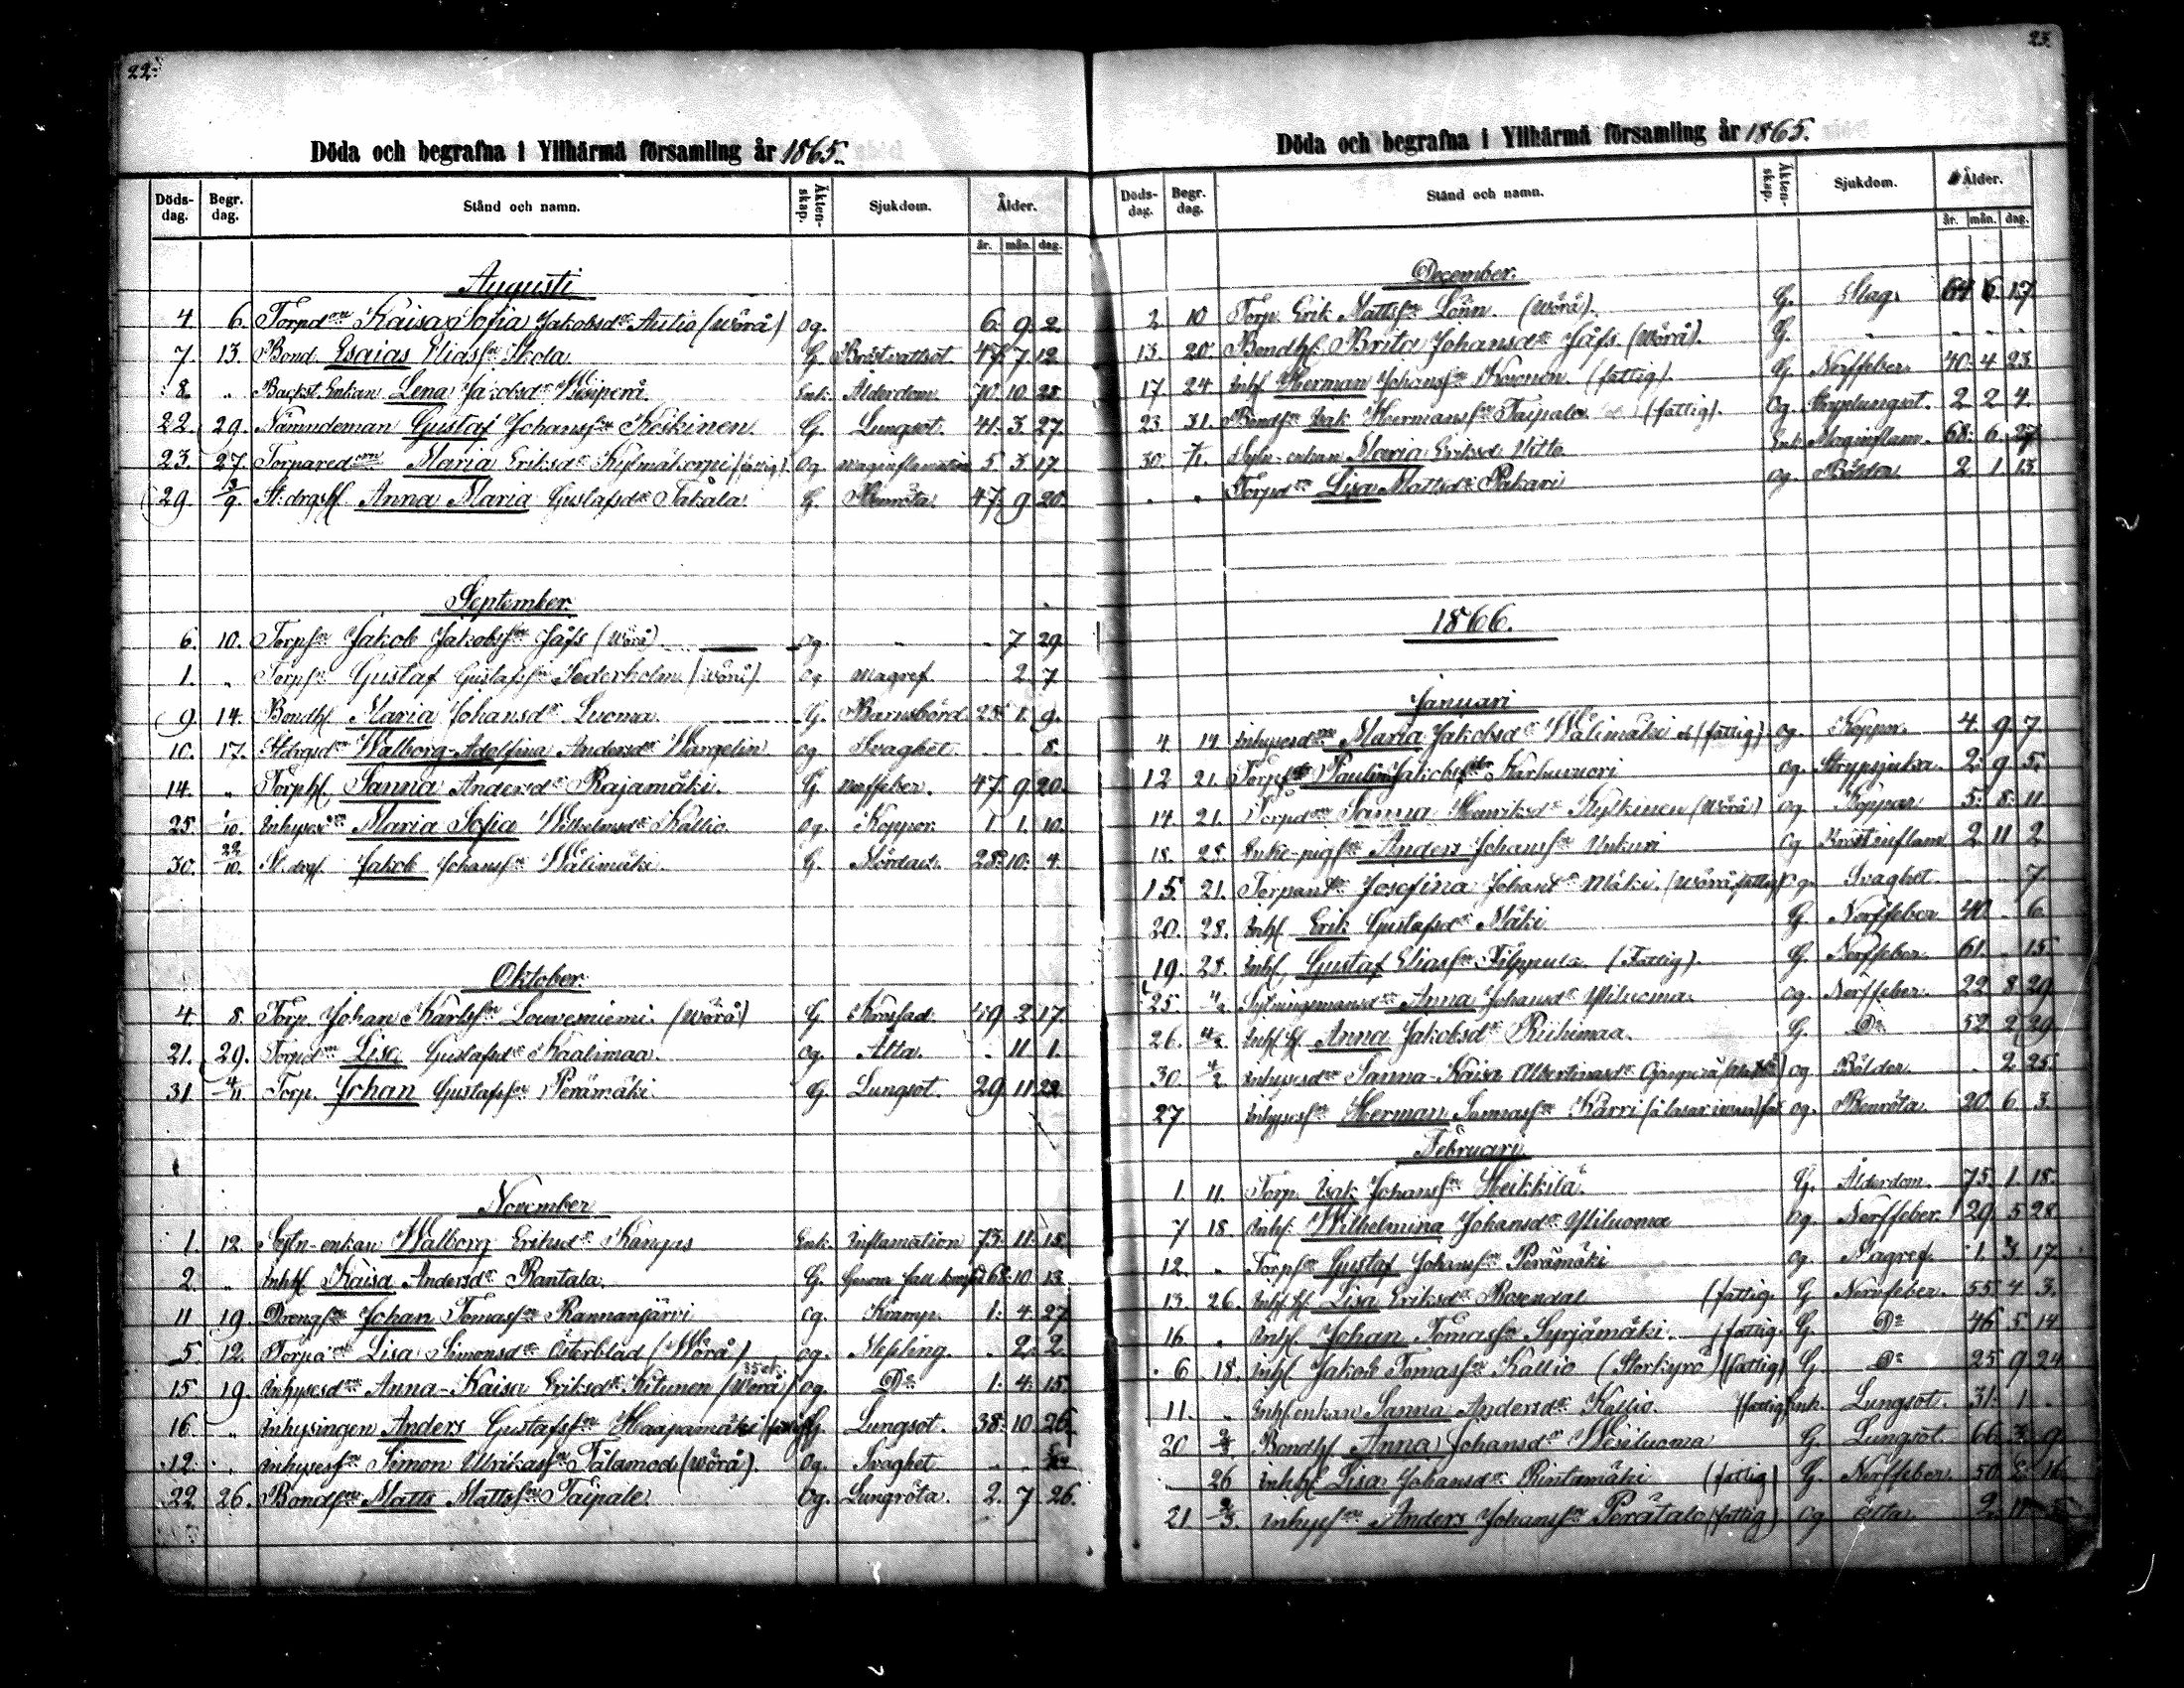 22.
Döda och begrafna i Yllhärmä församling år 1865.
Döds-dag. Begr. dag. Stånd och namn. Äkten-skap. Sjukdom. Ålder.
år. mån. dag.
Augusti
4. 6. Torpd:en Kaisa Sofia Jakobsdr Autio (Wörå) og. 6. 9. 2.
7. 13. Bond. Esaias Eliasson Skola G. Bröstvattsot 47. 7. 12.
8. " Backst. Enkan Lena Jakobsdr Enk. Ålderdom. 70. 10. 28.
22. 29. Nämndeman Gustaf Johanss:n Keskinen. G. Lungsot. 41. 3. 27.
23. 27. Torpared:ern Maria Eriksdr Kylmäkorpi (fattig) og maginflamation 5. 3. 17.
29. 3/9. St. drgshf Anna Maria Gustafsdr Takala. G. Benröta. 47. 9. 20.
September.
6. 10. Torps:n Jakob Jakobss:n Jåfs (Wörå) og. " . 7 29.
1. " Torps:n Gustaf Gustafss:n Sederholm (Wörå). og magref . 2. 7
9 14. Bondhf. Maria Johansdr Luoma. G. Barnsbörd 25. 1. 9.
10. 17. St. drgsdr Walborg-Adolfina Andersdr Wargelin og Svaghet. . . 8.
14. " Torphf. Sanna Andersdr Rajamäki. G. nerffeber. 47. 9. 20.
25 1/10. Inhyses:dr Maria Sofia Wilhelmsdr Kallio. og. Koppor. 1. 1. 10.
30. 22/10. St. drgs. Jakob Johanss:n Wälimäki. G. Mördad. 28. 10. 4.
Oktober.
4. 8. Torp. Johan Karlss:n Louvesniemi. (Wörå) G. Krossad. 49 2 17.
21. 29. Torpd:n Lisa Gustafsdr Kaalimaa. og. Åtta. . 11 1.
31 4/11 Torp. Johan Gustafss:n Perämäki G. Lungsot. 29. 11. 22
November
1. 12. Sytn-enkan Walborg Eriksdr Kangas Enk. Inflamation 73. 11. 15.
2. " Inhhf. Kaisa Andersdr Rantala. G. Genom fall 68. 10 13.
11 19. Drengs:n Johan Tomass:n Rannanjärvi og. Kramp. 1. 4. 27
5. 12. Torpa Lisa Simonsdr Österblad (Wörå) og. Meßling. . 2. 2.
15. 19. Inhysesd:n Anna-Kaisa Eriksdr Kitunen (Wörå) og. Do 1. 4. 15.
16. " Inhysingen Anders Gustafss:n Haapamäki (fattig) G. Lungsot. 38. 10. 26.
12. " Inhysess:n Simon Ulrikass:n Tålamod (Wörå). og. Svaghet.
22. 26. Bonds:n Matts Mattss:n Taipale. og. Lungröta. 2. 7 26.
23.
Döda och begrafna i Yllhärmä församling år 1865.
Döds-dag. Begr. dag. Stånd och namn. Äkten-skap. Sjukdom. Ålder.
år. mån. dag.
December.
2. 10 Torp. Erik Mattss:n Lönn. (Wörå). G. Slag. 64 6. 17.
13. 20. Bondhf. Brita Johansdr Jåfs (Wörå). G.
17. 24. Inhs Herman Johanss:n (fattig). G. Nerffeber. 40. 4 23.
23. 31. Bonds:n Isak Hermanss:n Taipale (fattig). og Stryplungsot. 2 2 4.
30. 7/1. Sytn-enkan Maria Eriksd Vitto Enk Maginflam. 68. 6. 27
. " Torpd:n Lisa Mattsdr Pukari og. Bölder 2 1 13.
1866.
Januari
4. 14. Inhysesd:n Maria Jakobsdr Wälimäki (fattig) og. Koppor. 4. 9. 7.
12 21. Torps:dr Paulina Karhuvuori og. Strypsjuka. 2. 9 5.
14. 21. Torpd:n Sanna Henriksdr Kylkinen (Wörå) og Koppor 5. 8. 11
18. 28. Enke-pigs:n Anders Johanss:n Unkuri og Bröstinflam 2 11 2
15. 21. Torpand:r Josefina Johansdr Mäki. (Wörå fattig) og. Svaghet. 7
20. 28. Inhs Erik Gustafsd Mäki. G. Nerffeber 40 . 6.
19. 28. Inhs. Gustaf Eliass:n Filppula (Fattig). G. Nerffeber. 61. . 15.
25. 4/2 Sytningsmansdr Anna Johansdr Yliluoma. og. Nerffeber. 22 8 29.
26. 4/2. Inhs hf Anna Jakobsdr Riihimaa. G. Do 52 2 29.
30. 4/2 Inhysesd:n Sanna-Kaisa Albertinasdr og Bölder. . 2 25.
27. Inhysess:n Herman Sannass:n Karri og. Benröta 20 6. 3.
Februari
1. 11. Torp. Isak Johanss:n Heikkilä. G. Ålderdom. 75. 1. 18.
7 18. Inhs. Wilhelmina Johansdr Yliluoma og. Nerffeber. 29. 5 28.
12. " Torps:n Gustaf Johanss:n Perämäki og. Magref. 1. 3 17
13. 26. Inhs hf Lisa Eriksdr Rosendal (fattig. G. Nervfeber. 55. 4 3.
16. " Inhs. Johan Tomass:n Syrjämäki. (fattig. G. Do 46 5 14
6. 18. Inhs. Jakob Tomass:n Kallio (Storkyro) (fattig) G. Do 25 9 24
11. " Inhs enkan Sanna Andersdr Kallio. (fattig) Enk. Lungsot. 31. 1 .
20 2/3 Bondhf Anna Johansdr Wesiluoma G. Lungsot. 66. 3. 9
. 26 Inhhf Lisa Johansdr Rintamäki (fattig) G. Nerffeber. 50.
21 2/3. Inhyss:n Anders Johanss:n Perätalo (fattig) og åtta. 2. 11